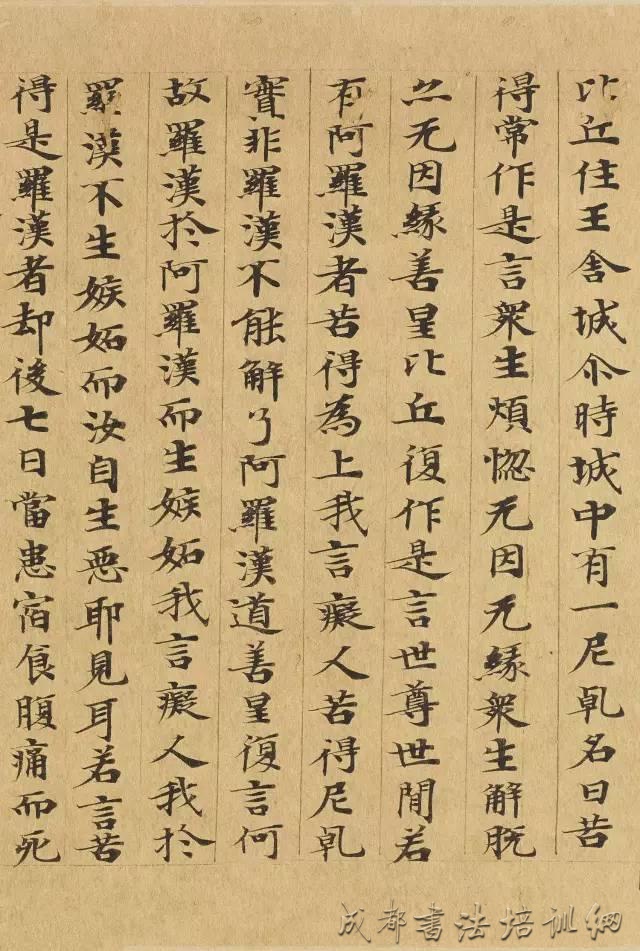 比丘住王舍城尒時城中有一尼乹名曰苦
得常作是言衆生煩惚无因无緣衆生解脫
亦无因緣善星比丘復作是言世尊世閒若
有阿羅漢者苦得為上我言癡人苦得尼乹
實非羅漢不能解了阿羅漢道善星復言何
故羅漢於阿羅漢而生嫉妬我言癡人我於
羅漢不生嫉妬而汝自生惡耶見耳若言苦
得是羅漢者却後七日當患宿食腹痛而死
成都书法培训網